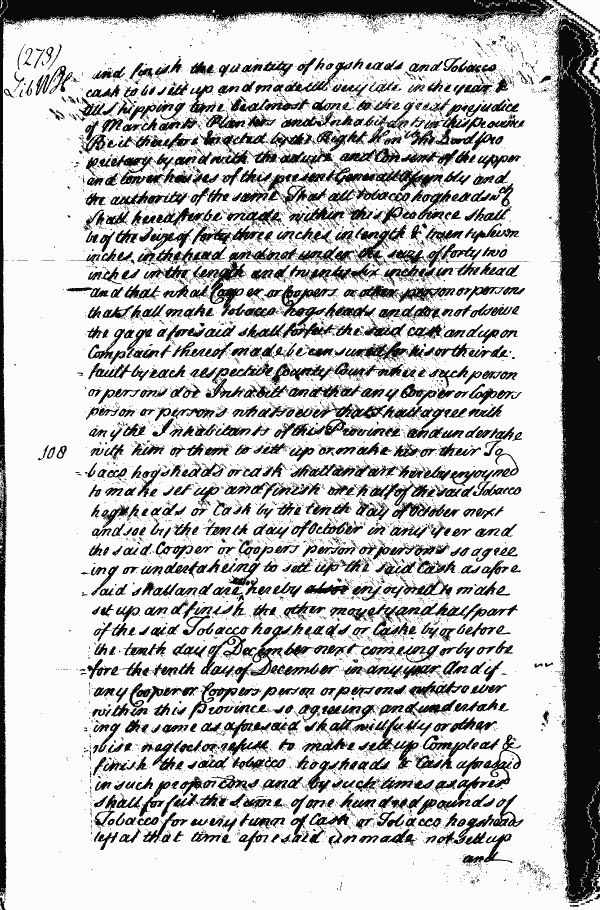 (273)
Lib WH
and finish the quantity of hogsheads and Tobacco
cash to be sett up and made till very late in the year &
till shipping time be almost done to the great prejudice
of Marchants Planters and Inhabitants in this Province
Be it therefore Enacted by the Right Honble the Lord Pro
prietary by and with the advice and Consent of the upper
and lower houses of this present Generall Assembly and
the authority of the same That all tobacco hogheads wch
shall hereafter be made within this Province shall
be of the seize of forty three inches in length & twenty seven
inches in the head and not under the seize of forty two
inches in the length and twenty six inches in the head
and that what Cooper or Coopers or other person or persons
that shall make tobacco hogsheads and doe not observe
the gage aforesaid shall forfeit the said cask and upon
Complaint thereof made be censured for his or their de-
fault by each respective County Court where such person
or persons doe Inhabitt and that any Cooper or Coopers
person or persons whatsoever that shall agree with
any the Inhabitants of this Province and undertake
108
with him or them to sett up or make his or their To
bacco hogsheads or cask shall and are hereby enjoyned
to make set up and finish one half of the said Tobacco
hogsheads or Cask by the tenth day of October next
and soe by the tenth day of October in any year and
the said Cooper or Coopers person or persons so agree
ing or undertakeing to sett up the said Cask as afore
said shall and are hereby also enjoyned to make
set up and finish the other moyety and half part
of the said Tobacco hogsheads or Caske by or before
the tenth day of December next comeing or by or be
fore the tenth day of December in any year And if
any Cooper or Coopers person or persons whatsoever
within this Province so agreeing and undertake
ing the same as aforesaid shall willfully or other
wise neglect or refuse to make sett up Compleat &
finish the said tobacco hogsheads & Cask aforesaid
in such proporcons and by such times as aforesd
shall forfeit the sume of one hundred pounds of
Tobacco for every tunn of Cask or Tobacco hogsheads
left at that time aforesaid unmade not sett up
and